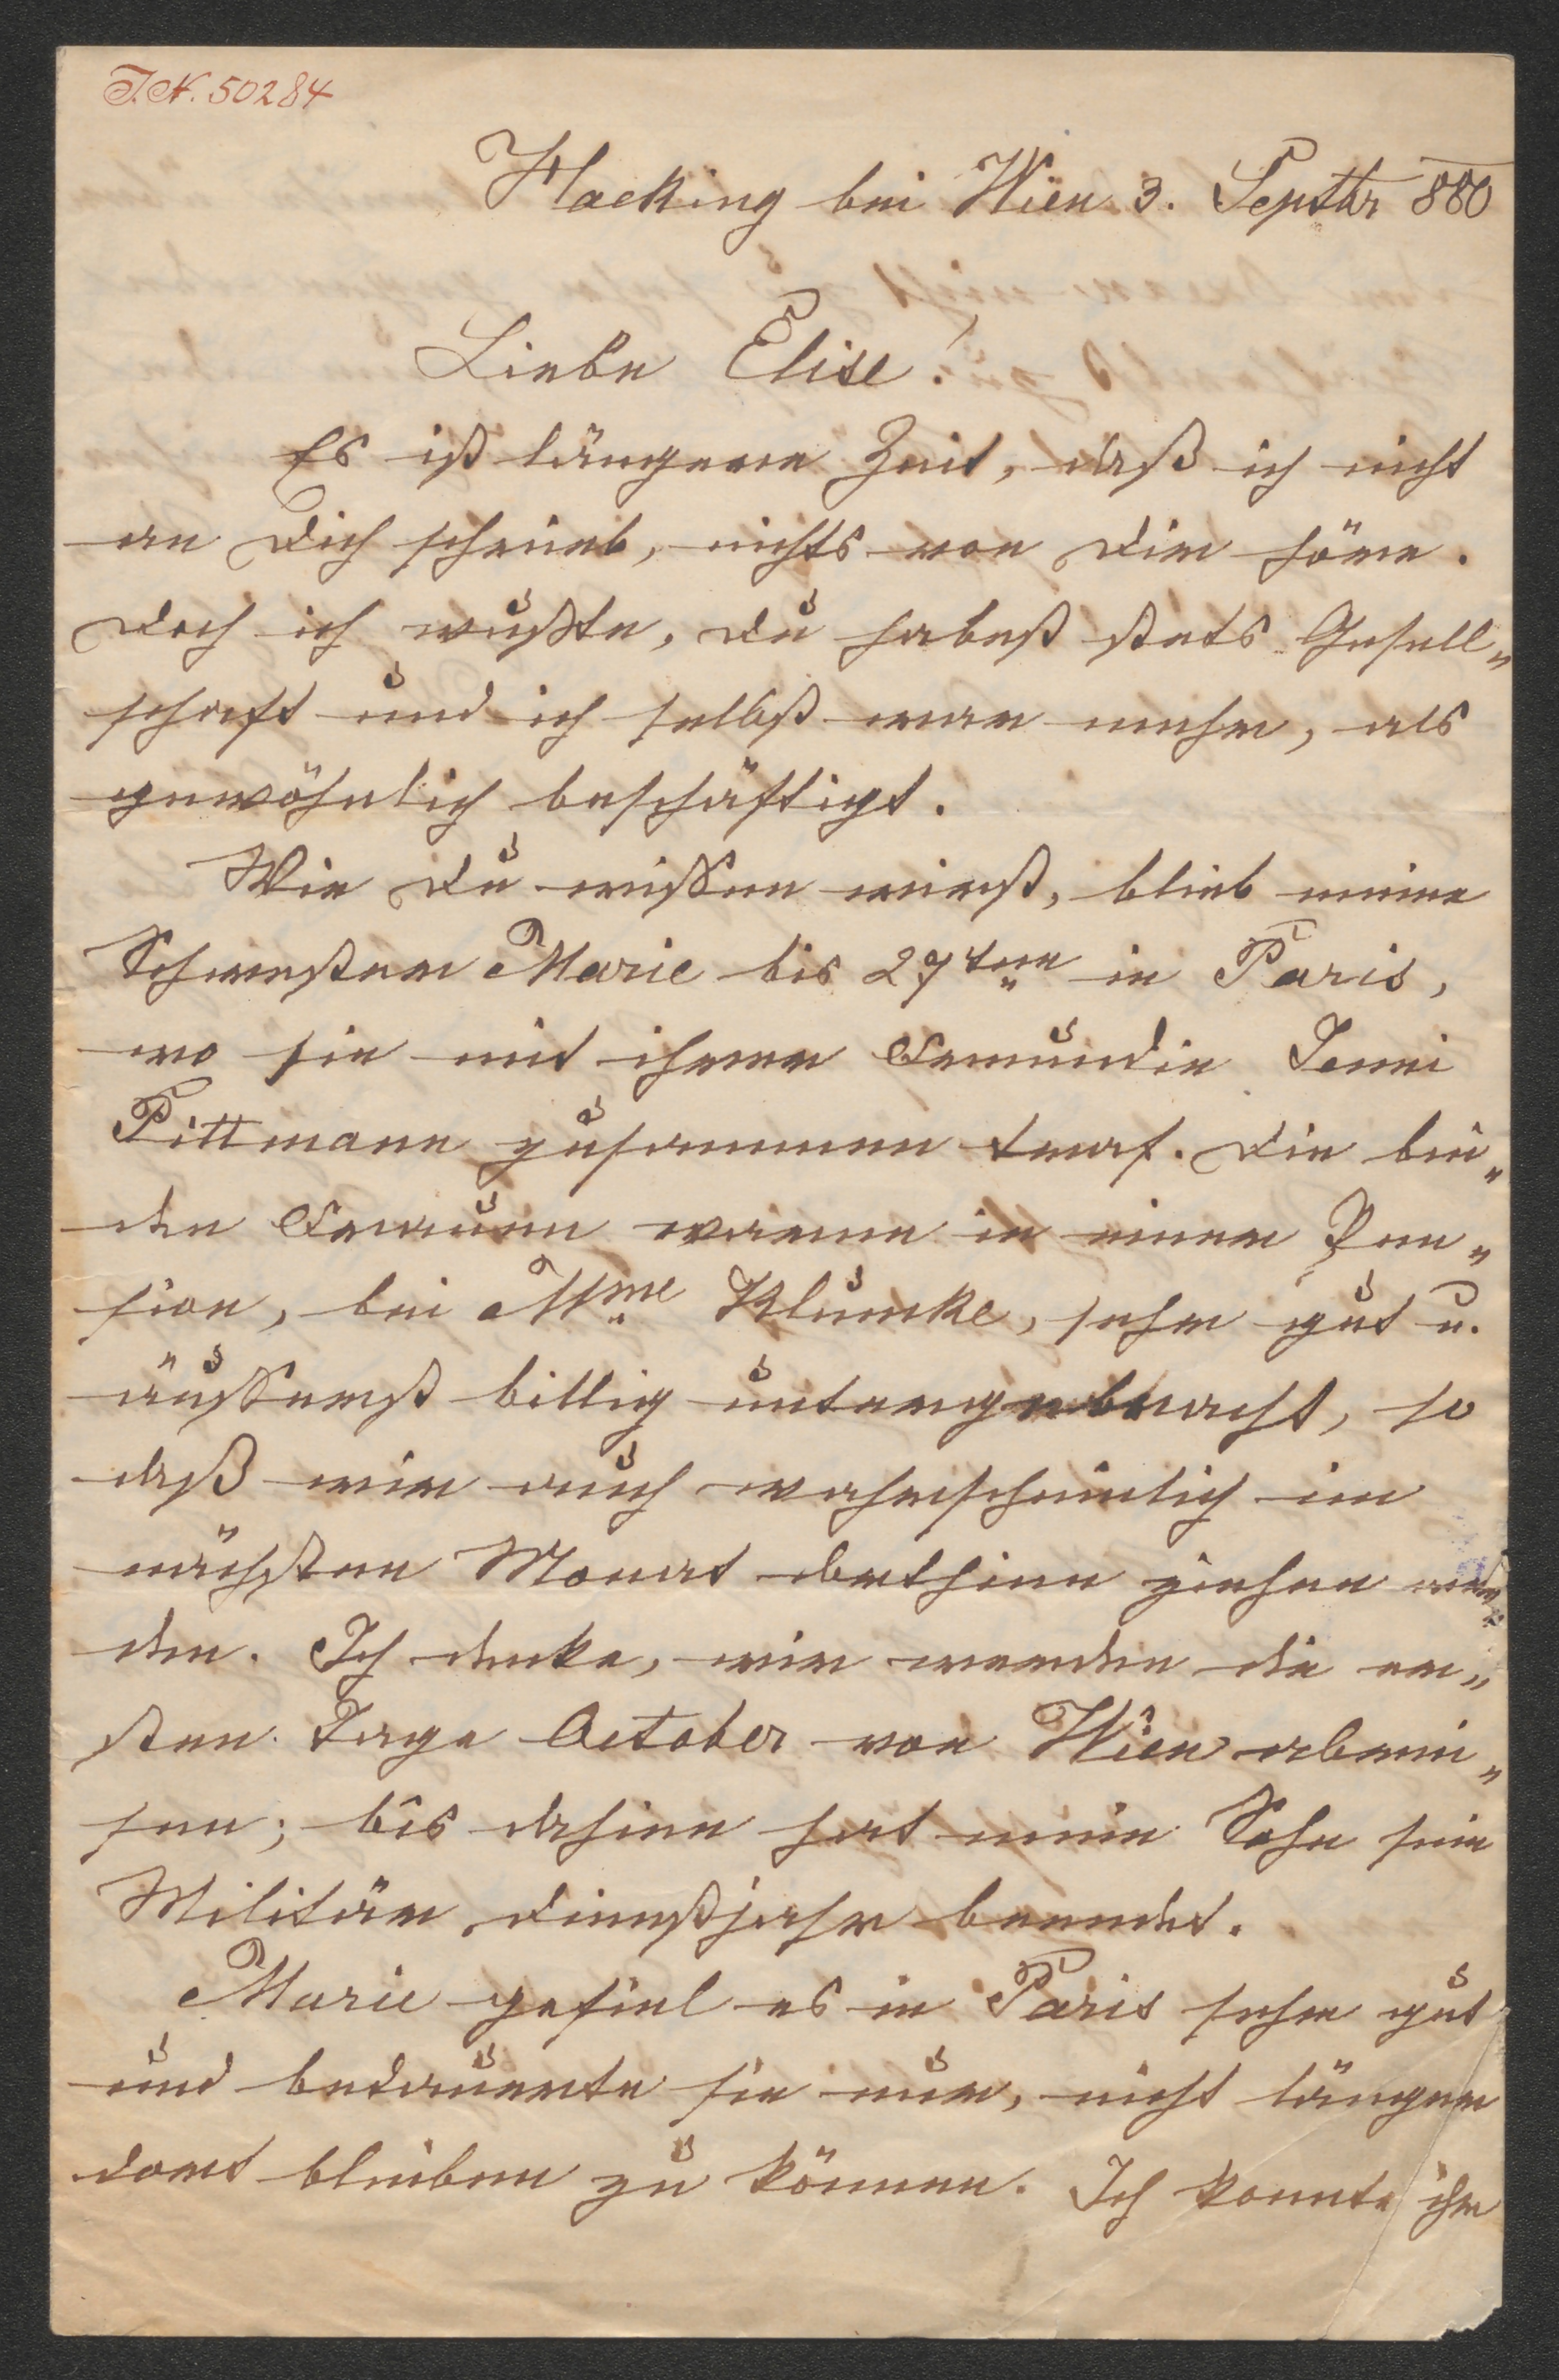 I.N. 50284
Hacking bei Wien 3. Septbr 880
Liebe Elise!
Es ist längere Zeit, daß ich nicht
an Dich schrieb, nichts von Dir höre.
Doch ich wußte, Du habest stets Gesell„
schaft und ich selbst war mehr, als
gewöhnlich beschäftigt.
Wie Du wissen wirst, blieb meine
Schwester Marie bis 27ten in Paris,
wo sie mit ihrer Freundin Jenni
Pittmann zusammen traf. Die bei„
den Frauen waren in einer Pen„
sion, bei Mme Klumke, sehr gut u.
äusserst billig untergebracht, so
daß wir auch wahrscheinlich im
nächsten Monat dorthin ziehen wer„
den. Ich denke, wir werden die er„
sten Tage October von Wien abrei„
sen; bis dahin hat mein Sohn sein
Militär Dienstjahr beendet.
Marie gefiel es in Paris sehr gut
und bedauerte sie nur, nicht länger
dort bleiben zu können. Ich konnte ihr